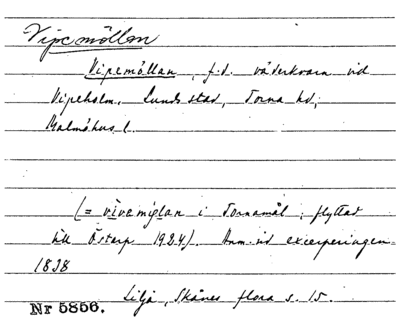 Vipemöllan
Vipemöllan, f.d. väderkvarn vid
Vipeholm, Lunds stad, Torna hd,
Malmöhus l.
(= vivemölan i Tornamål; flyttad
till Östarp 1924). Anm. vid excerperingen.
1838
Lilja, Skånes flora s. 15.
Nr 5856.